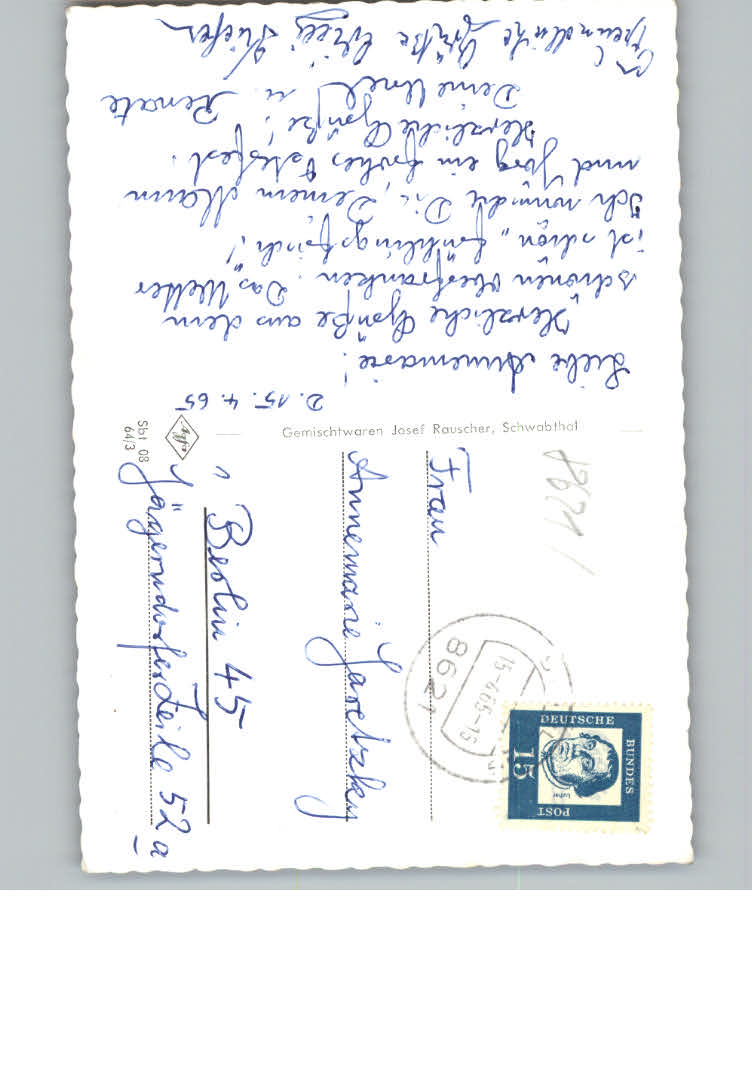 D. 15. 4. 65
Liebe Annemarie!
Herzliche Grüße aus dem
schönen Oberfranken. Das Wetter
ist schön „frühlingsfrisch“!
Ich wünsche Dir, Deinem Mann
und Jörg ein frohes Osterfest.
Herzliche Grüße!
Deine u. Renate
Freundliche Grüße
Gemischtwaren Josef Rauscher, Schwabthal
Agfa
Sbt 08
64/3
8621
15.-4.65-15
8621
DEUTSCHE
BUNDES
POST
15
Luther
Frau
Annemarie Jaretzky
1 Berlin 45
Jägerndorferzeile 52a